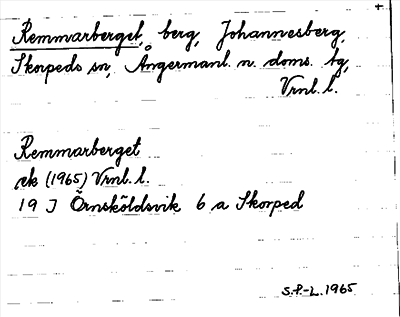 Remmarberget, berg, Johannesberg,
Skorpeds sn, Ångermanl. n. doms. tg,
Vrnl. l.
Remmarberget
ek (1965) Vrnl. l.
19 J Örnsköldsvik 6 a Skorped
S.P.-L. 1965